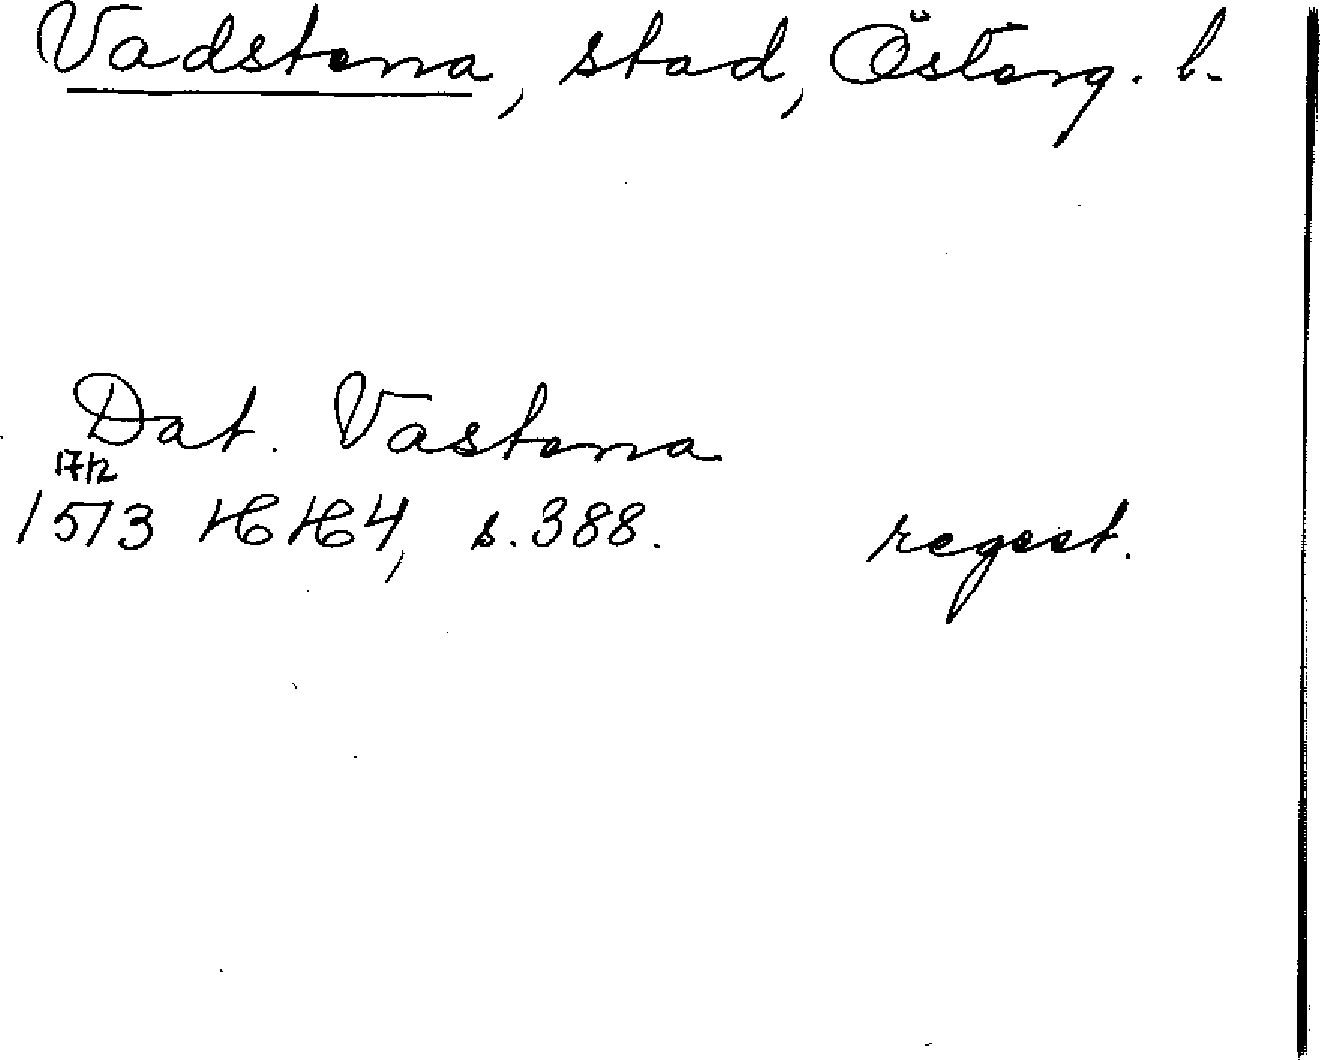 Vadstena, stad, Österg. l.
Dat. Vastena
17/12
1573 HH4, s. 388. regest.